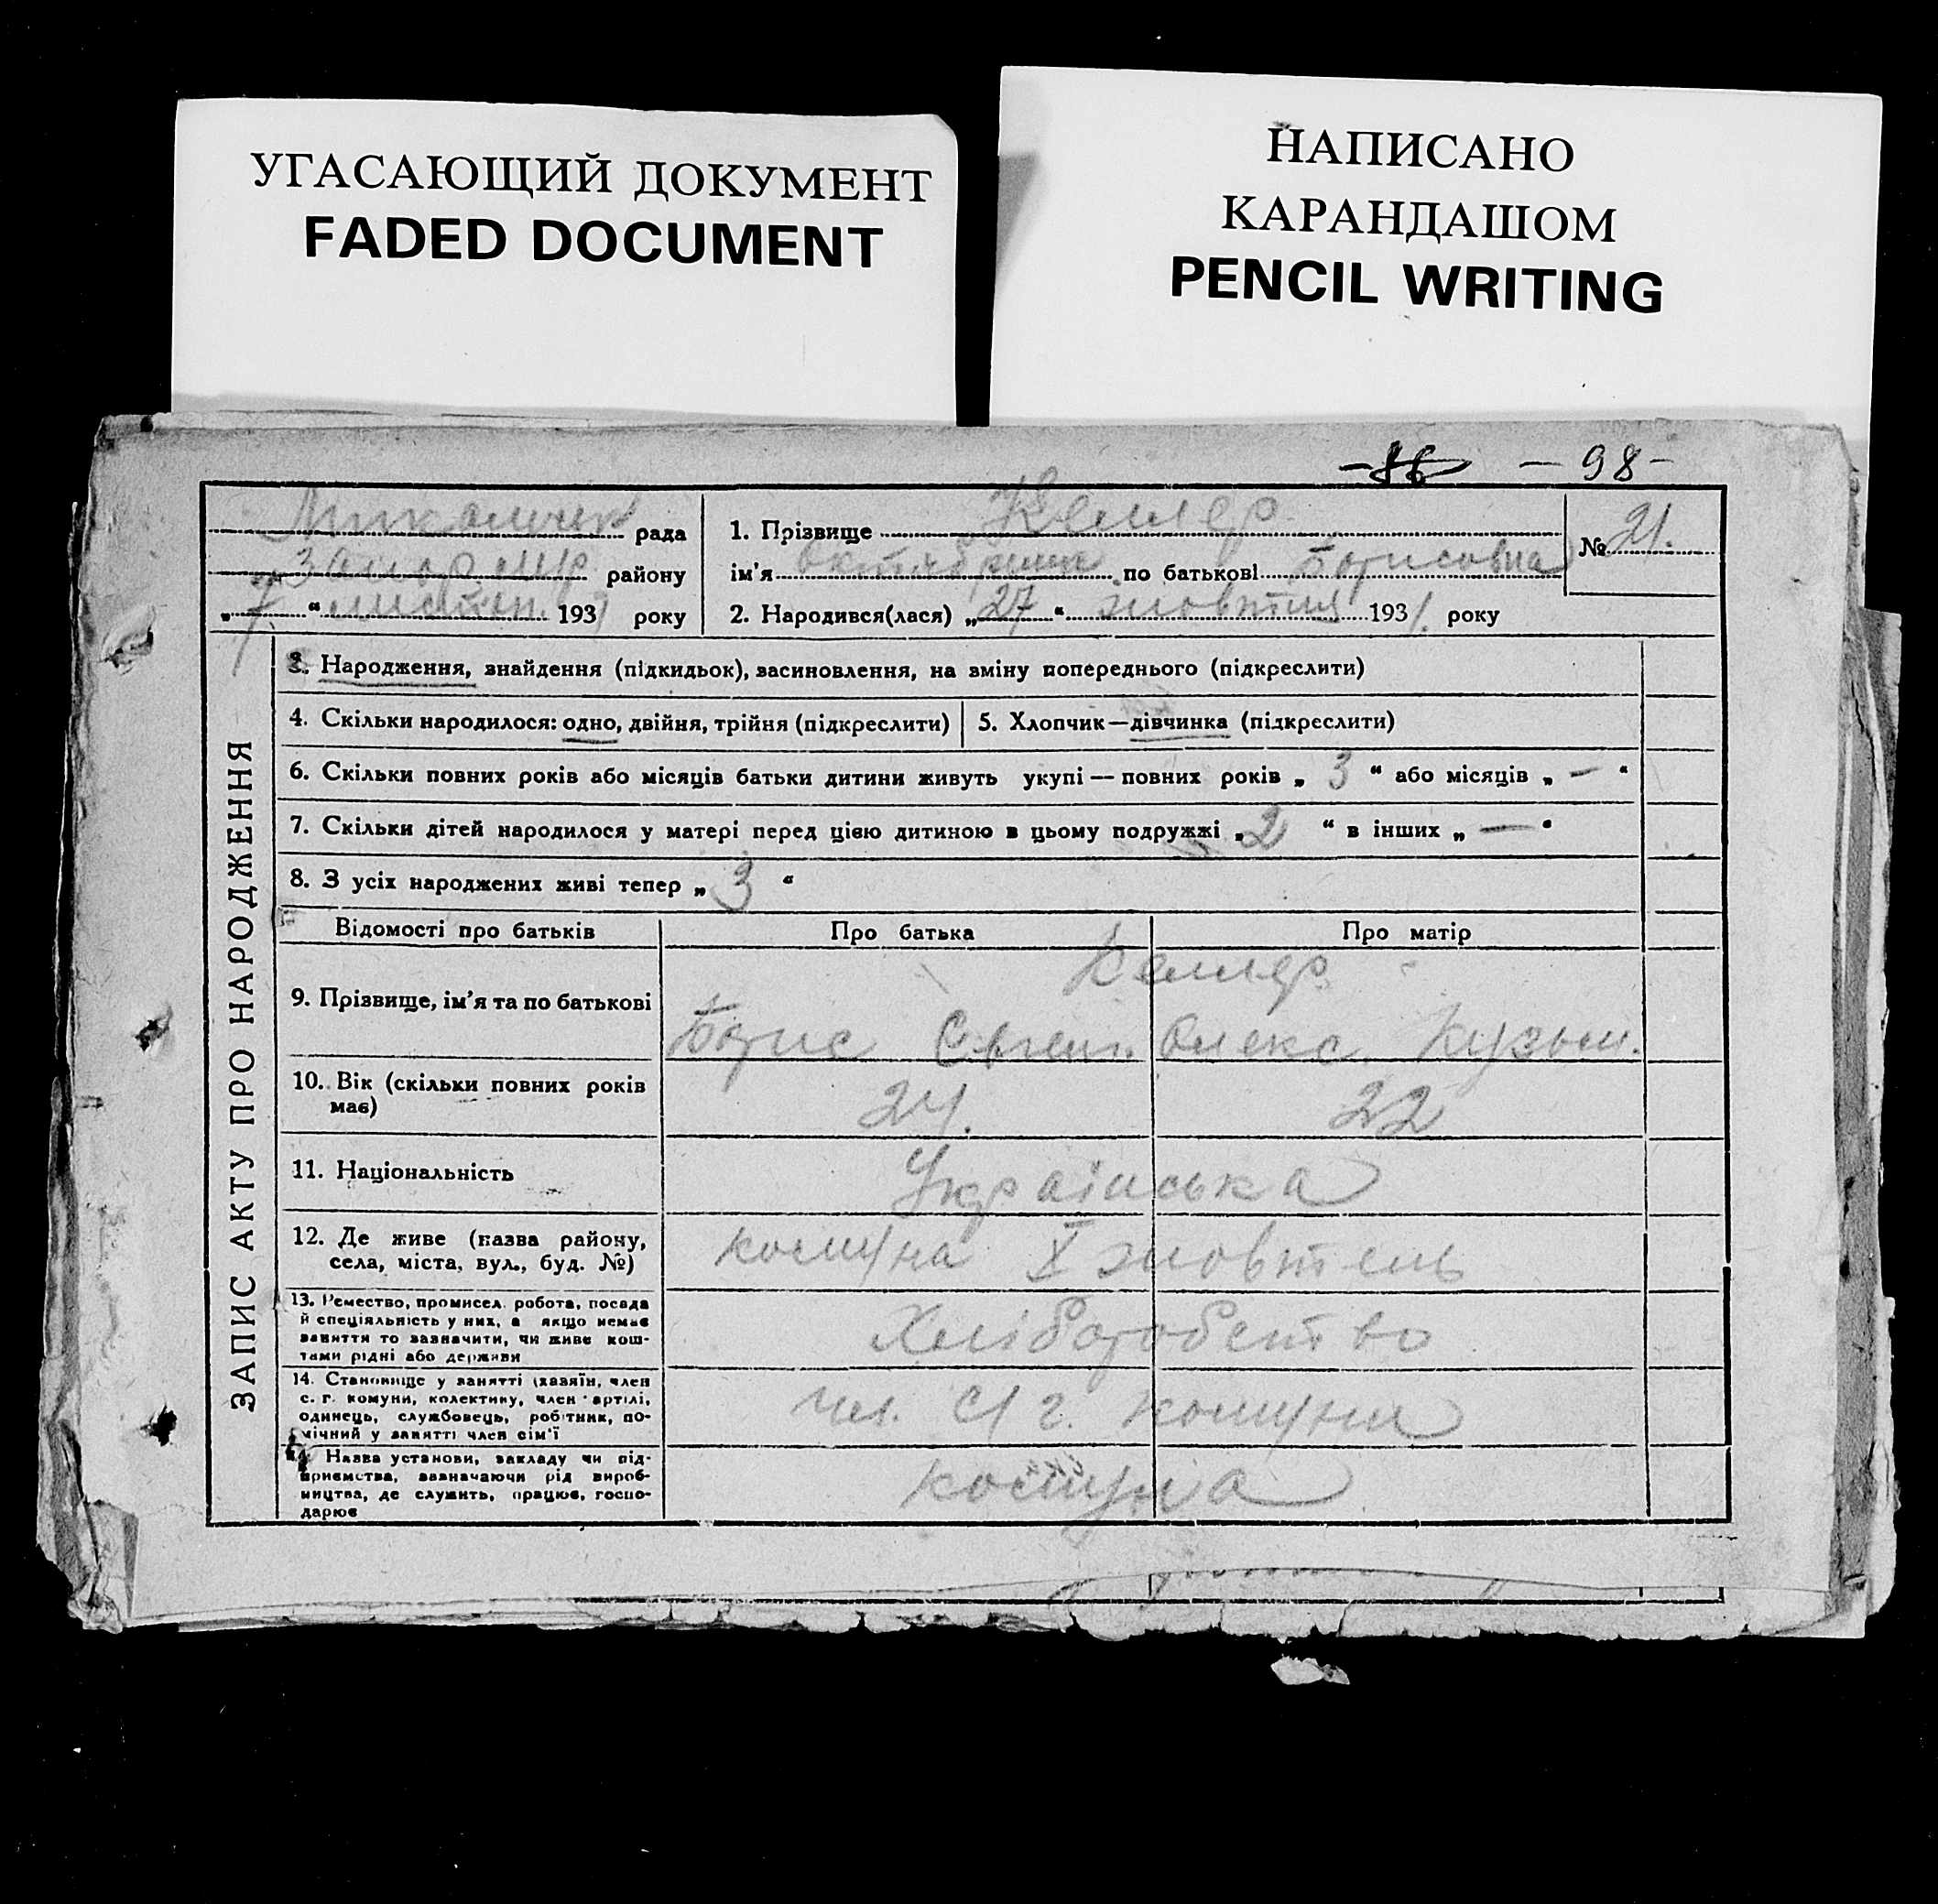 УГАСАЮЩИЙ ДОКУМЕНТ
FADED DOCUMENT
НАПИСАНО
КАРАНДАШОМ
PENCIL WRITING
— 98 —
рада
району
„ 7 “ листоп. 1931 року
1. Прізвище Келлер
ім'я Октябрина по батькові Борисовна
2. Народився(лася) „ 27 “ жовтня 1931. року
№ 21.
ЗАПИС АКТУ ПРО НАРОДЖЕННЯ
3. Народження, знайдення (підкидьок), засиновлення, на зміну попереднього (підкреслити)
4. Скільки народилося: одно, двійня, трійня (підкреслити)
5. Хлопчик—дівчинка (підкреслити)
6. Скільки повних років або місяців батьки дитини живуть укупі — повних років „ 3 “ або місяців „ — “
7. Скільки дітей народилося у матері перед цією дитиною в цьому подружжі „ 2 “ в інших „ — “
8. З усіх народжених живі тепер „ 3 “
Відомості про батьків
Про батька
Про матір
9. Прізвище, ім'я та по батькові
Келлер
Борис Євген.
Олекс. Кузьм.
10. Вік (скільки повних років
має)
24.
22
11. Національність
Українська
12. Де живе (назва району,
села, міста, вул., буд. №)
комуна X жовтень
13. Ремество, промисел, робота, посада
й спеціяльність у них, а якщо немає
заняття то зазначити, чи живе кош-
тами рідні або держави
Хліборобство
14. Становище у занятті (хазяїн, член
с. г. комуни, колективу, член артілі,
одинець, службовець, робітник, по-
мічний у занятті член сім'ї
чл. с/г. комуни
Назва установи, закладу чи під-
приємства, зазначаючи рід вироб-
ництва, де служить, працює, госпо-
дарює
комуна